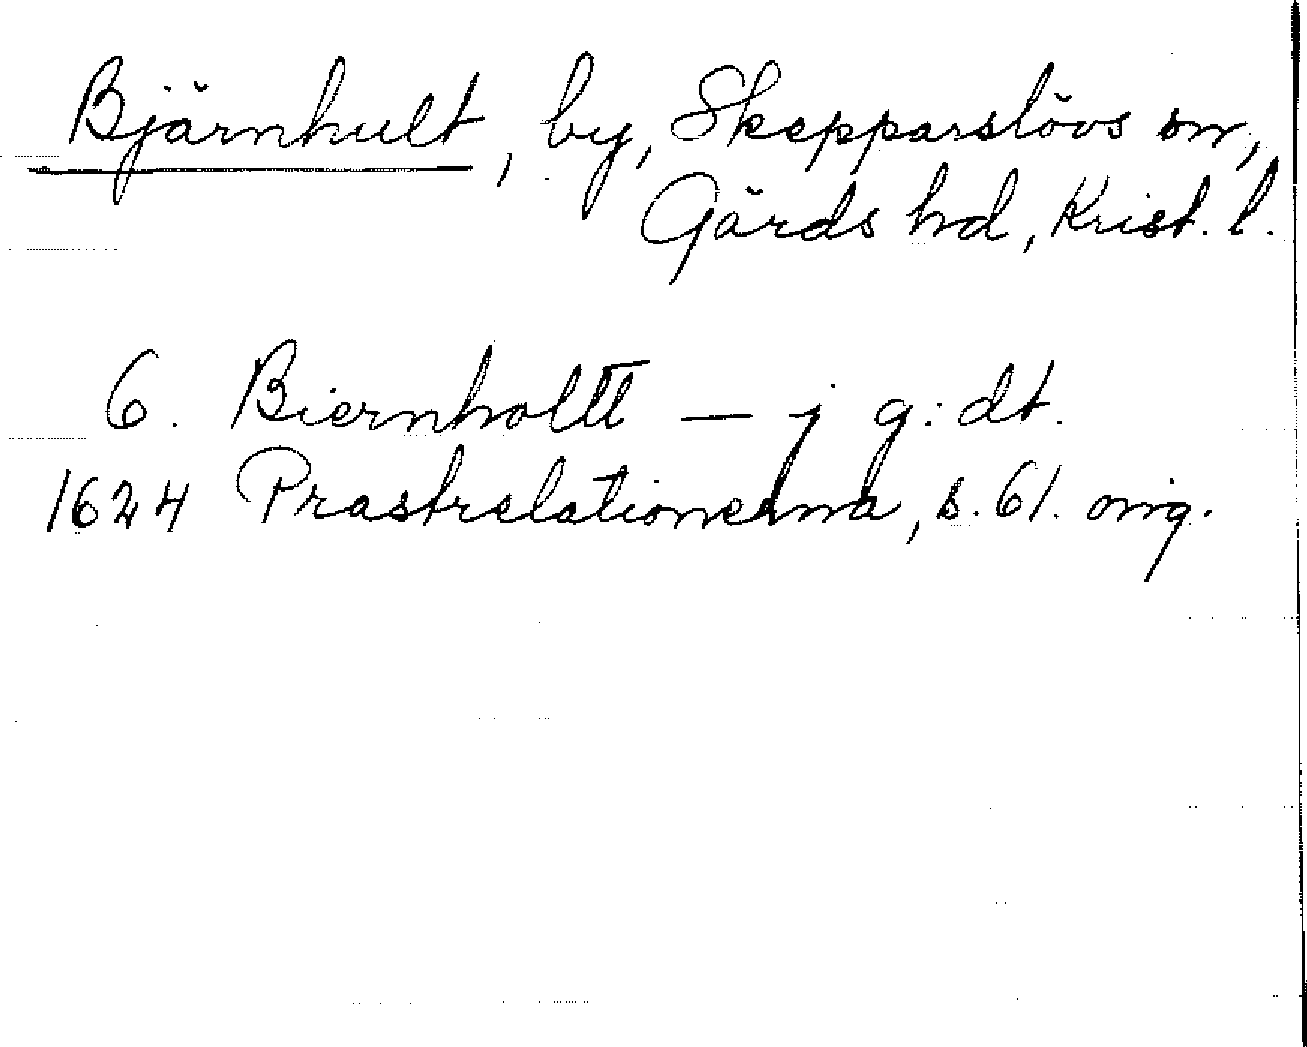 Bjärnhult, by, Skepparslövs sn,
Gärds hd, Krist. l.
6. Biernholtt — j g: dt.
1624 Prastrelationerna, s. 61. orig.